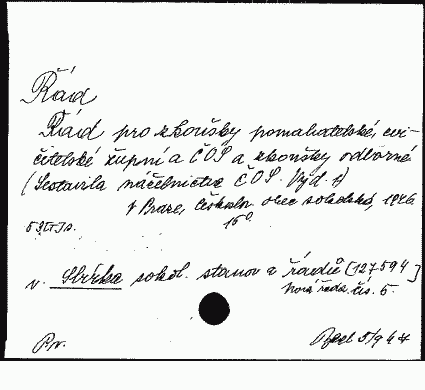 Řád
Řád pro zkoušky pomahatelské, cvi-
čitelské župní a ČOS a zkoušky odborné
(Sestavila náčelnictva ČOS. Vyd. 1)
v Praze, Českoslov. obec sokolská, 1926
53[1] s. 16°
v. Sbírka sokol. stanov a řádů [127594]
Nová řada. čís. 5.
Pv. 5/9 44